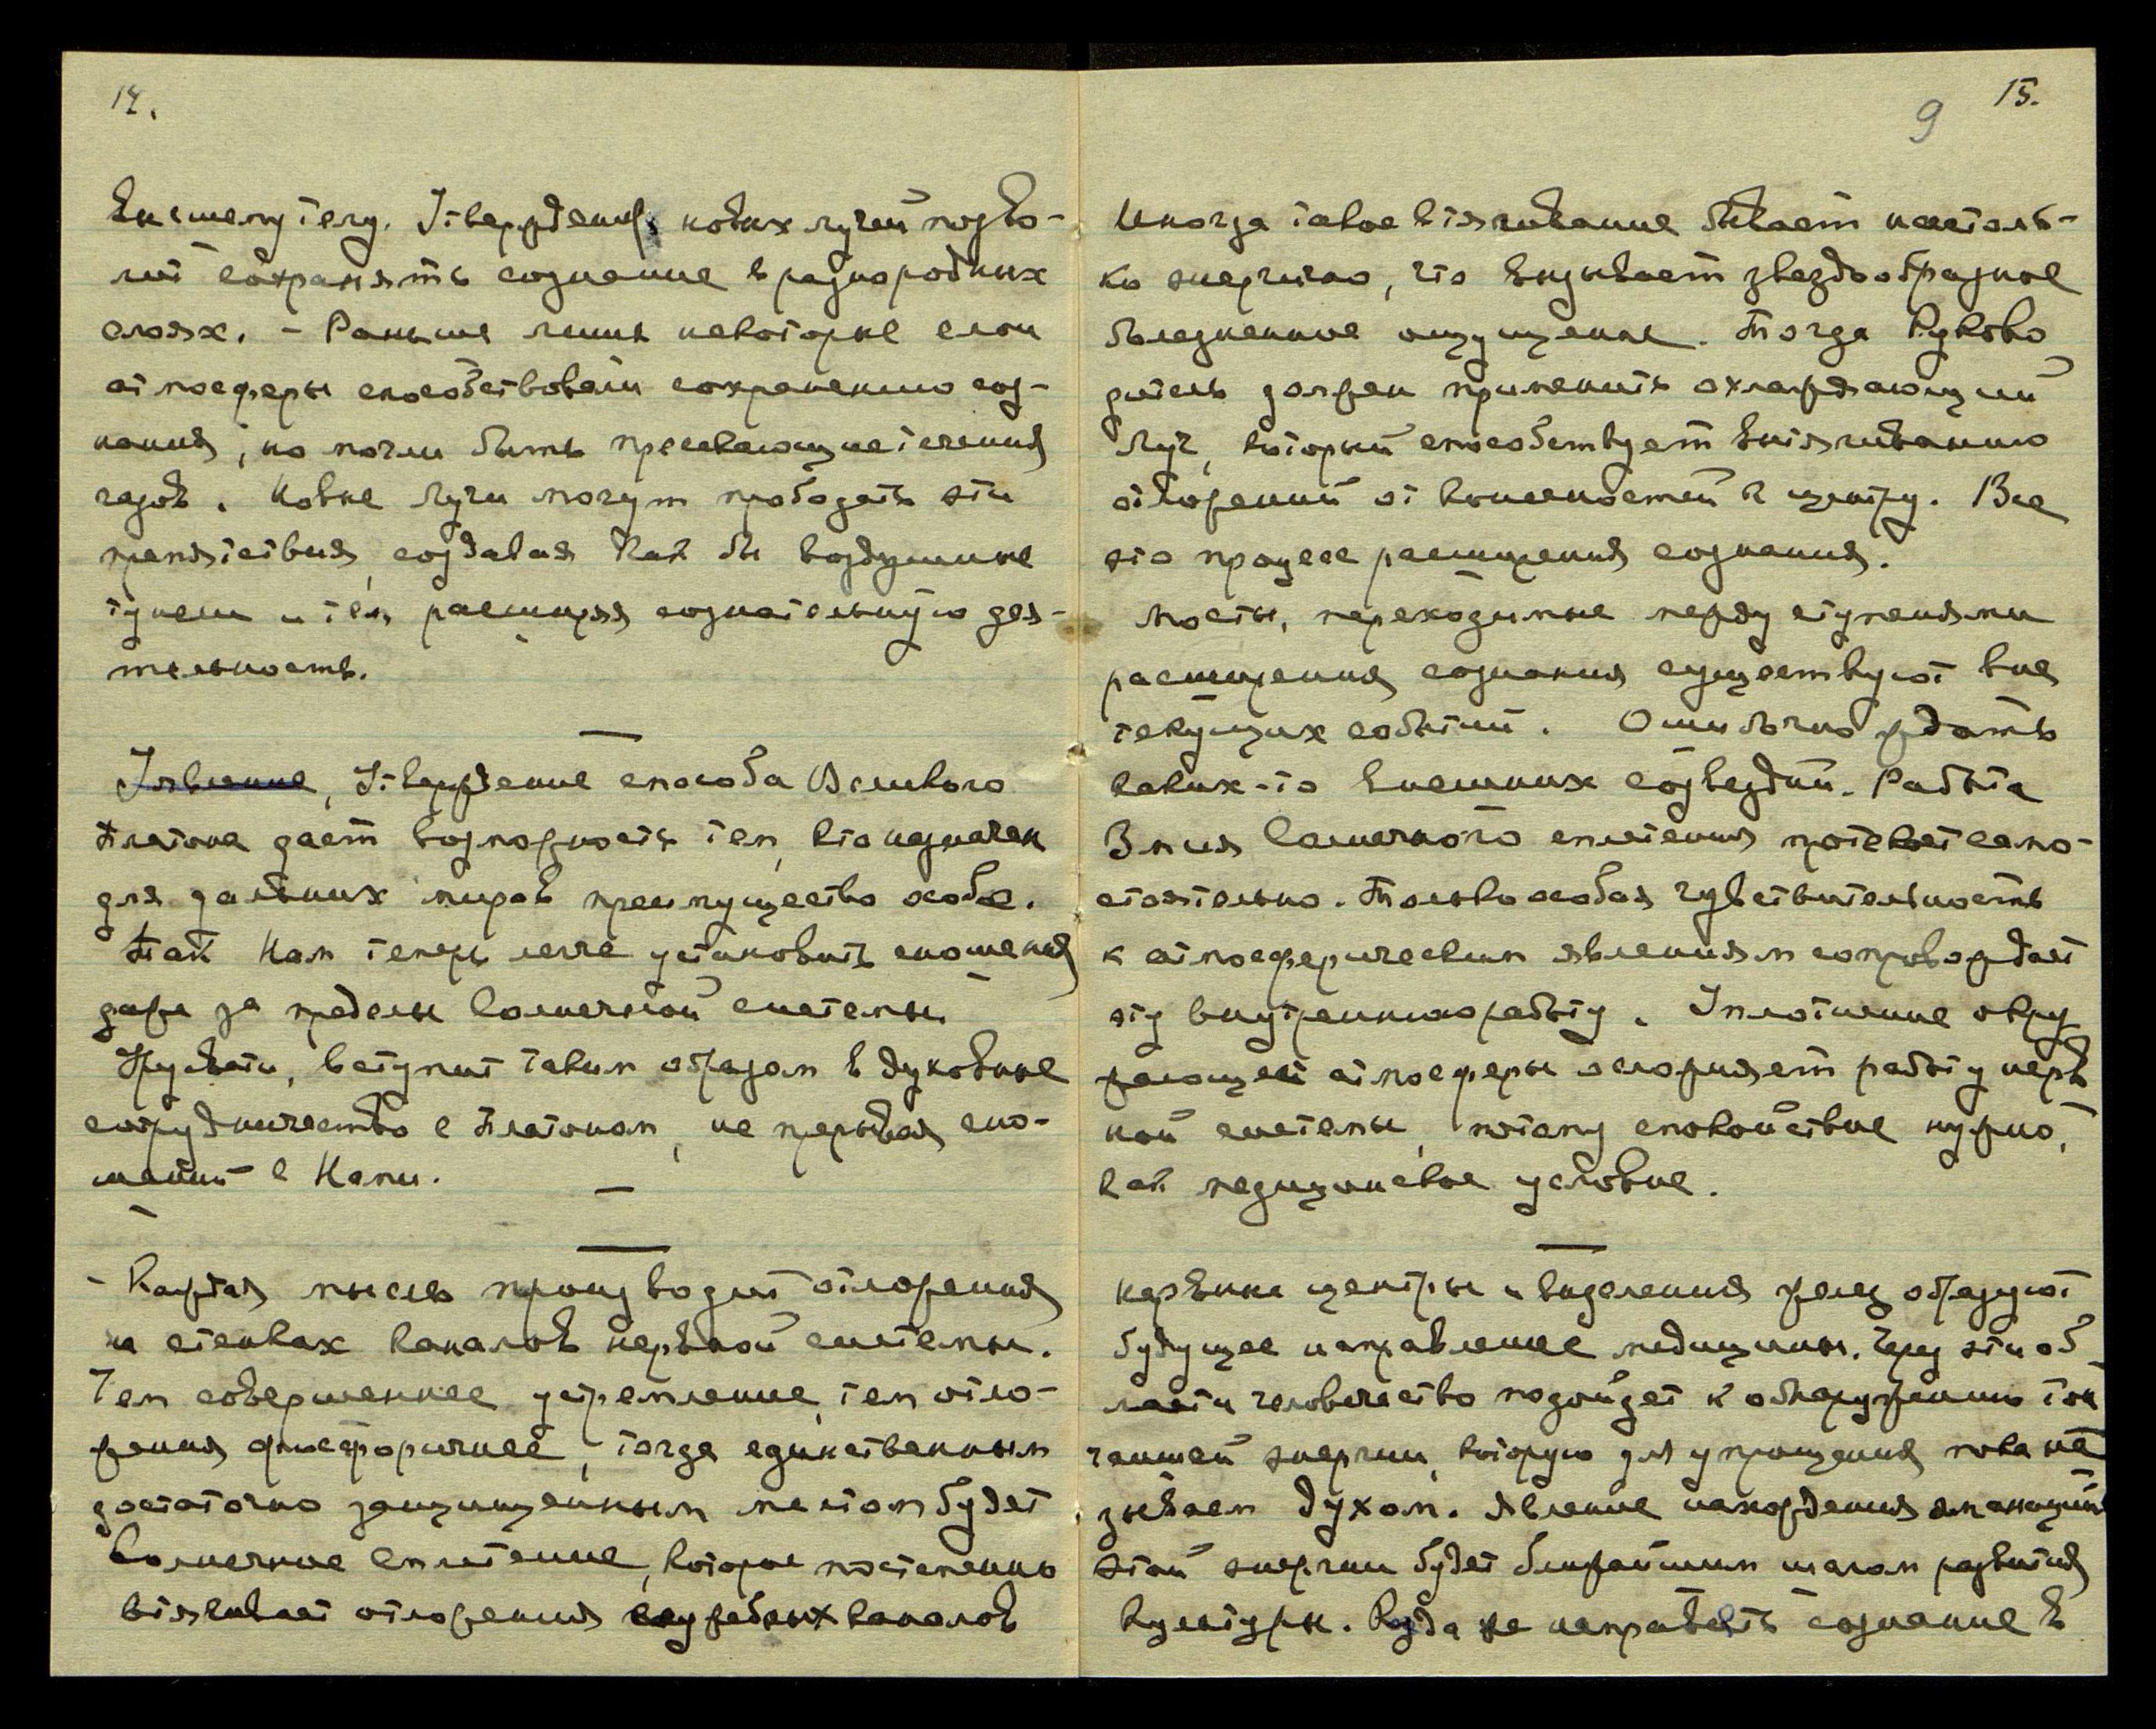 14.
внешнему телу. Утверждение новых лучей позво-
лит сохранять сознание в разнородных
слоях. - Раньше лишь некоторые слои
атмосферы способствовали сохранению соз-
нания, но могли быть пресекающие течения
газов. Новые лучи могут прободать эти
препятствия, создавая как бы воздушные
тунели и тем расширяя сознательную дея-
тельность.
Явление, Утверждение способа Великого
Платона дает возможность тем, кто назначен
для дальних миров преимущество особое.
Так Нам теперь легче установить сношения
даже за пределы солнечной системы.
Урусвати, вступит таким образом в духовное
сотрудничество с Платоном, не прерывая сно-
шений с Нами.
- Каждая мысль производит отложения
на стенках каналов нервной системы.
Чем совершеннее устремление, тем отло-
жения фосфоричнее, тогда единственным
достаточно защищенным местом будет
солнечное сплетение, которое постепенно
втягивает отложения служебных каналов
9 15.
Иногда такое втягивание бывает настоль-
ко энергично, что вызывает звездообразное
болезненное ощущение. Тогда Руково
дитель должен применить охлаждающий
луч, который способствует втягиванию
отложений от конечностей к центру. Все
это процесс расширения сознания.
Мосты, переходимые между ступенями
расширения сознания существуют вне
текущих событий. Ошибочно ждать
каких-то внешних созвездий. Работа
Змия солнечного сплетения протекает само-
стоятельно. Только особая чувствительность
к атмосферическим явлениям сопровождает
эту внутреннюю работу. Уплотнение окру
жающей атмосферы осложняет работу нерв
ной системы, потому спокойствие нужно,
как медицинское условие.
Нервные центры и выделения желез образуют
будущее направление медицины. Чрез эти об
ласти человечество подойдет к обнаружению тон
чайшей энергии, которую для упрощения пока на
зываем духом. Явление нахождения эманаций
этой энергии будет ближайшим шагом развития
культуры. Куда же направить сознание в